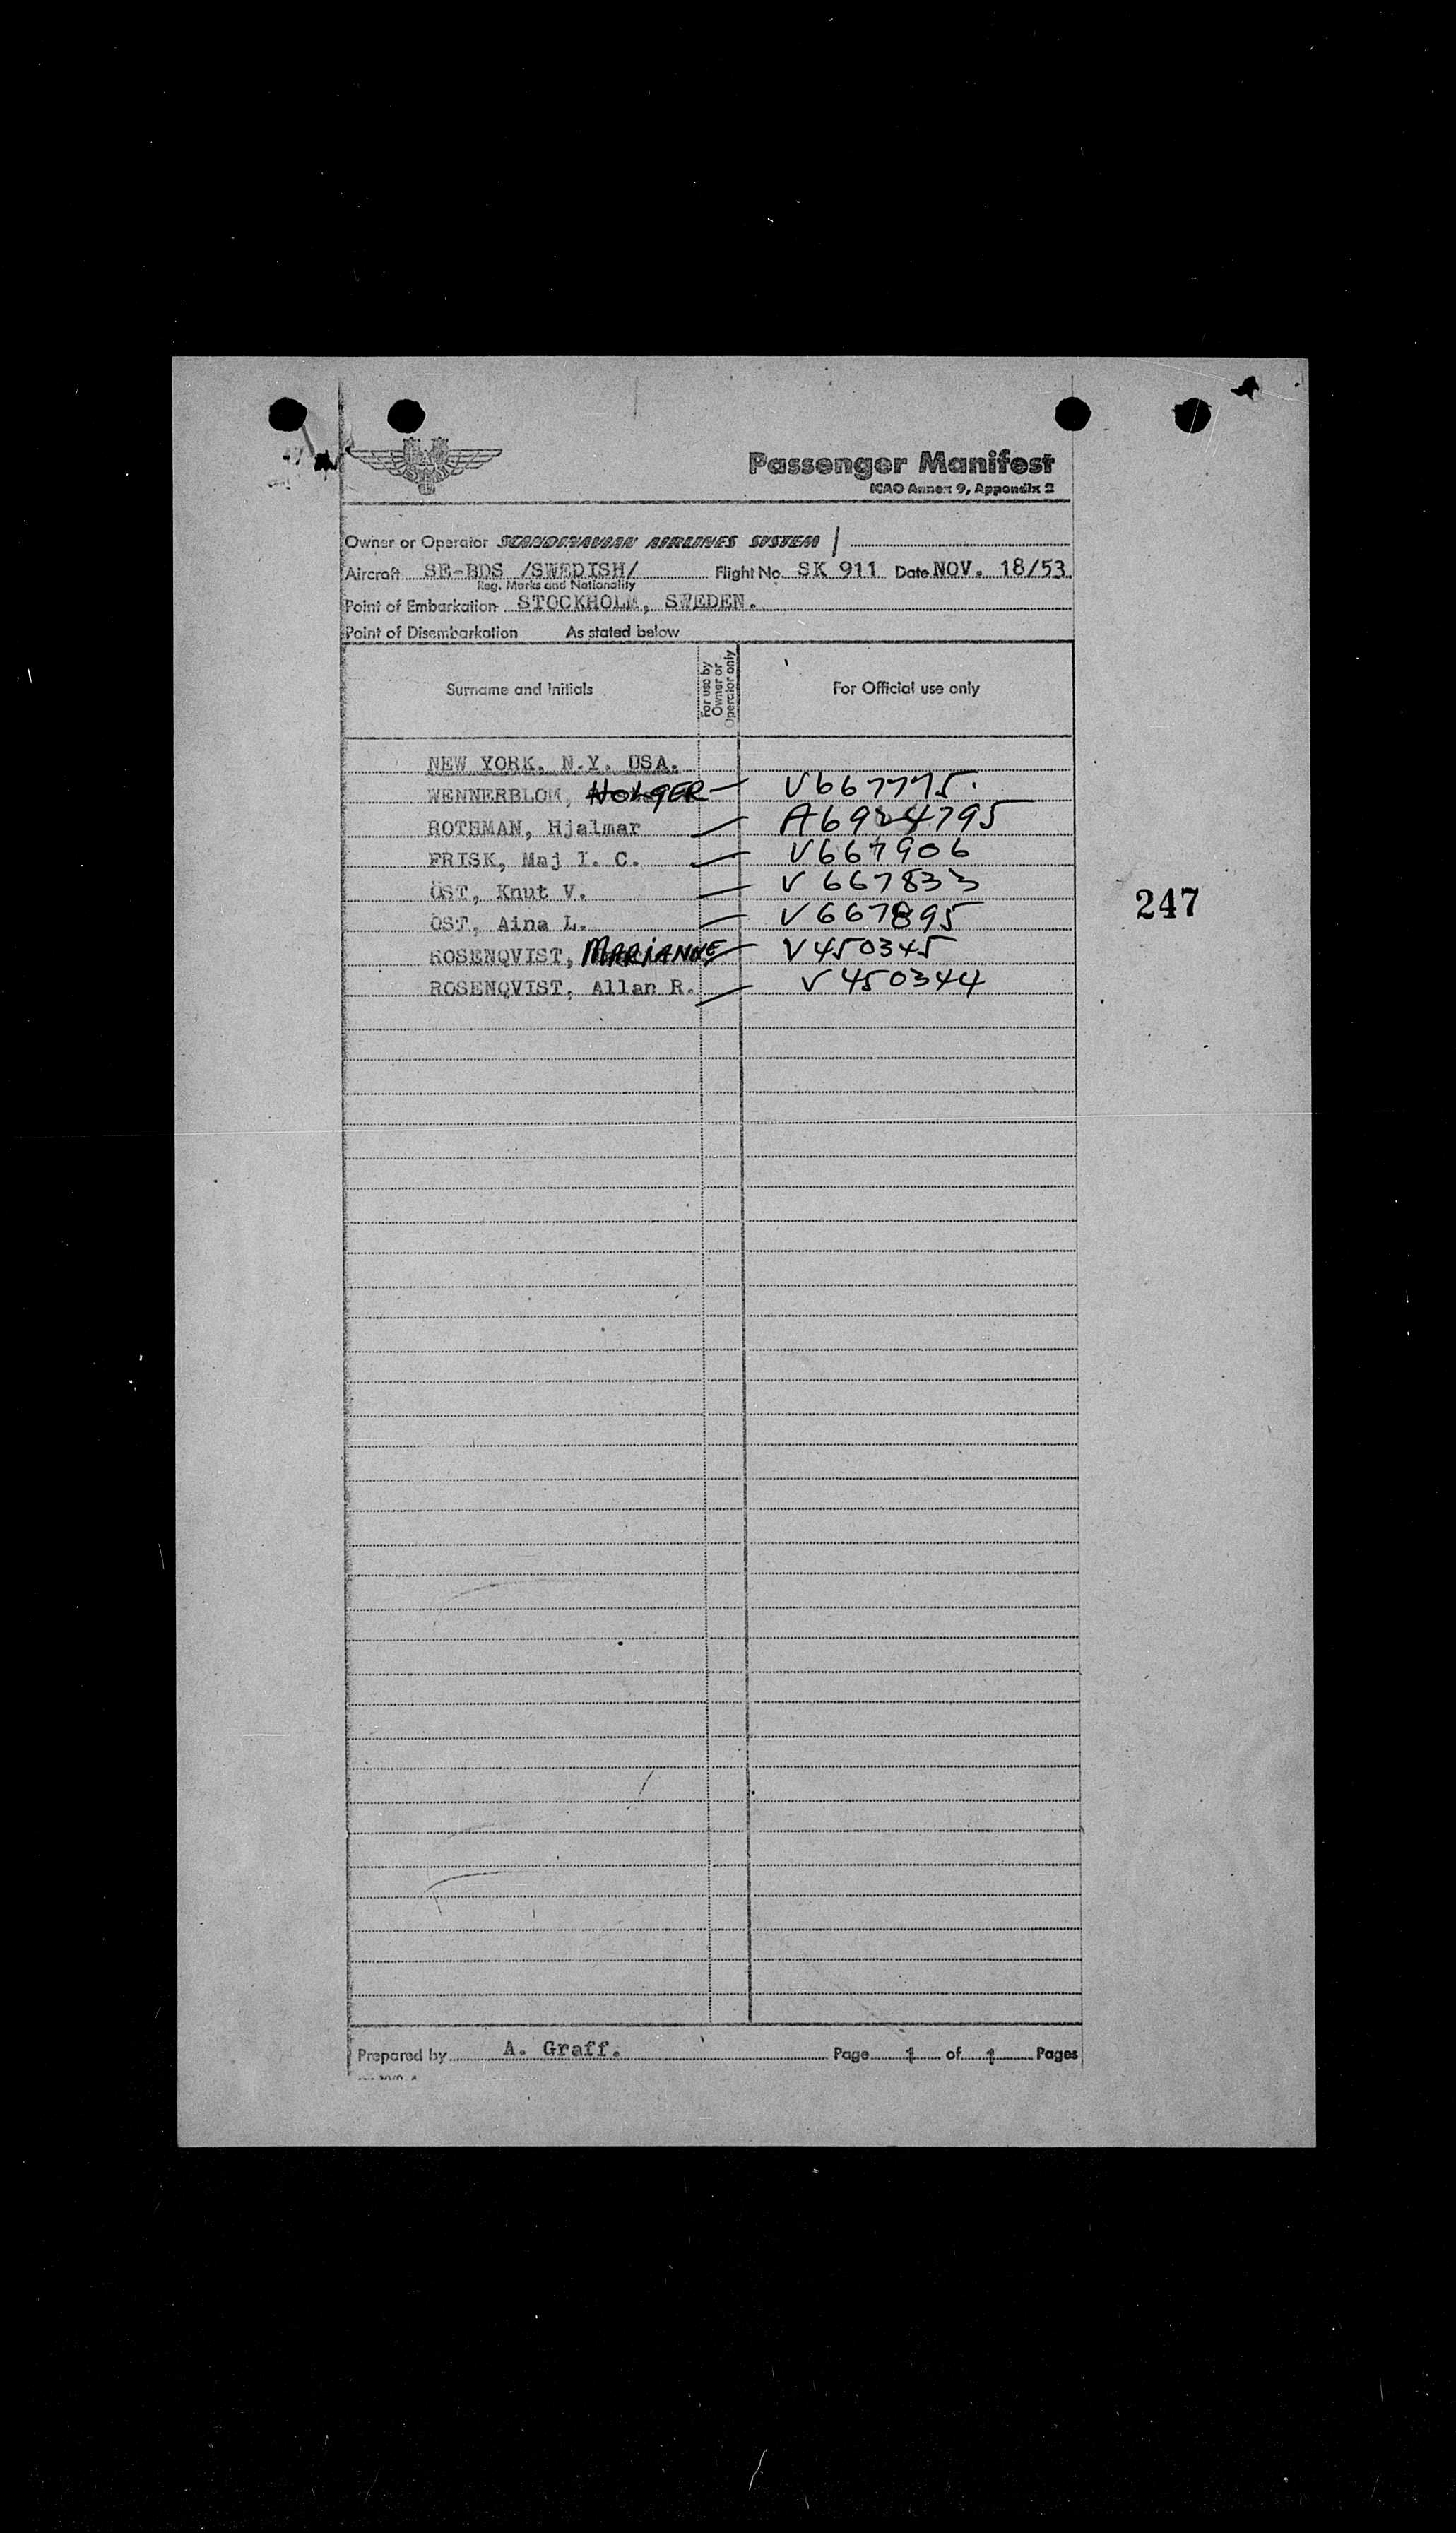 Passenger Manifest
ICAO Annex 9, Appendix 2
Owner or Operator SCANDINAVIAN AIRLINES SYSTEM
Aircraft SE-BDS /SWEDISH/ Flight No. SK 911 Date NOV. 18/53
Reg. Marks and Nationality
Point of Embarkation STOCKHOLM, SWEDEN.
Point of Disembarkation As stated below
Surname and Initials For use by Owner or Operator only For Official use only
NEW YORK, N.Y. USA.
WENNERBLOM, HOLGER V667775.
ROTHMAN, Hjalmar A6924795
FRISK, Maj I. C. V667906
ÖST, Knut V. V 667833
ÖST, Aina L. V667895
247
ROSENQVIST, MARIANNE V450345
ROSENQVIST, Allan R. V 450344
Prepared by A. Graff. Page 1 of 1 Pages